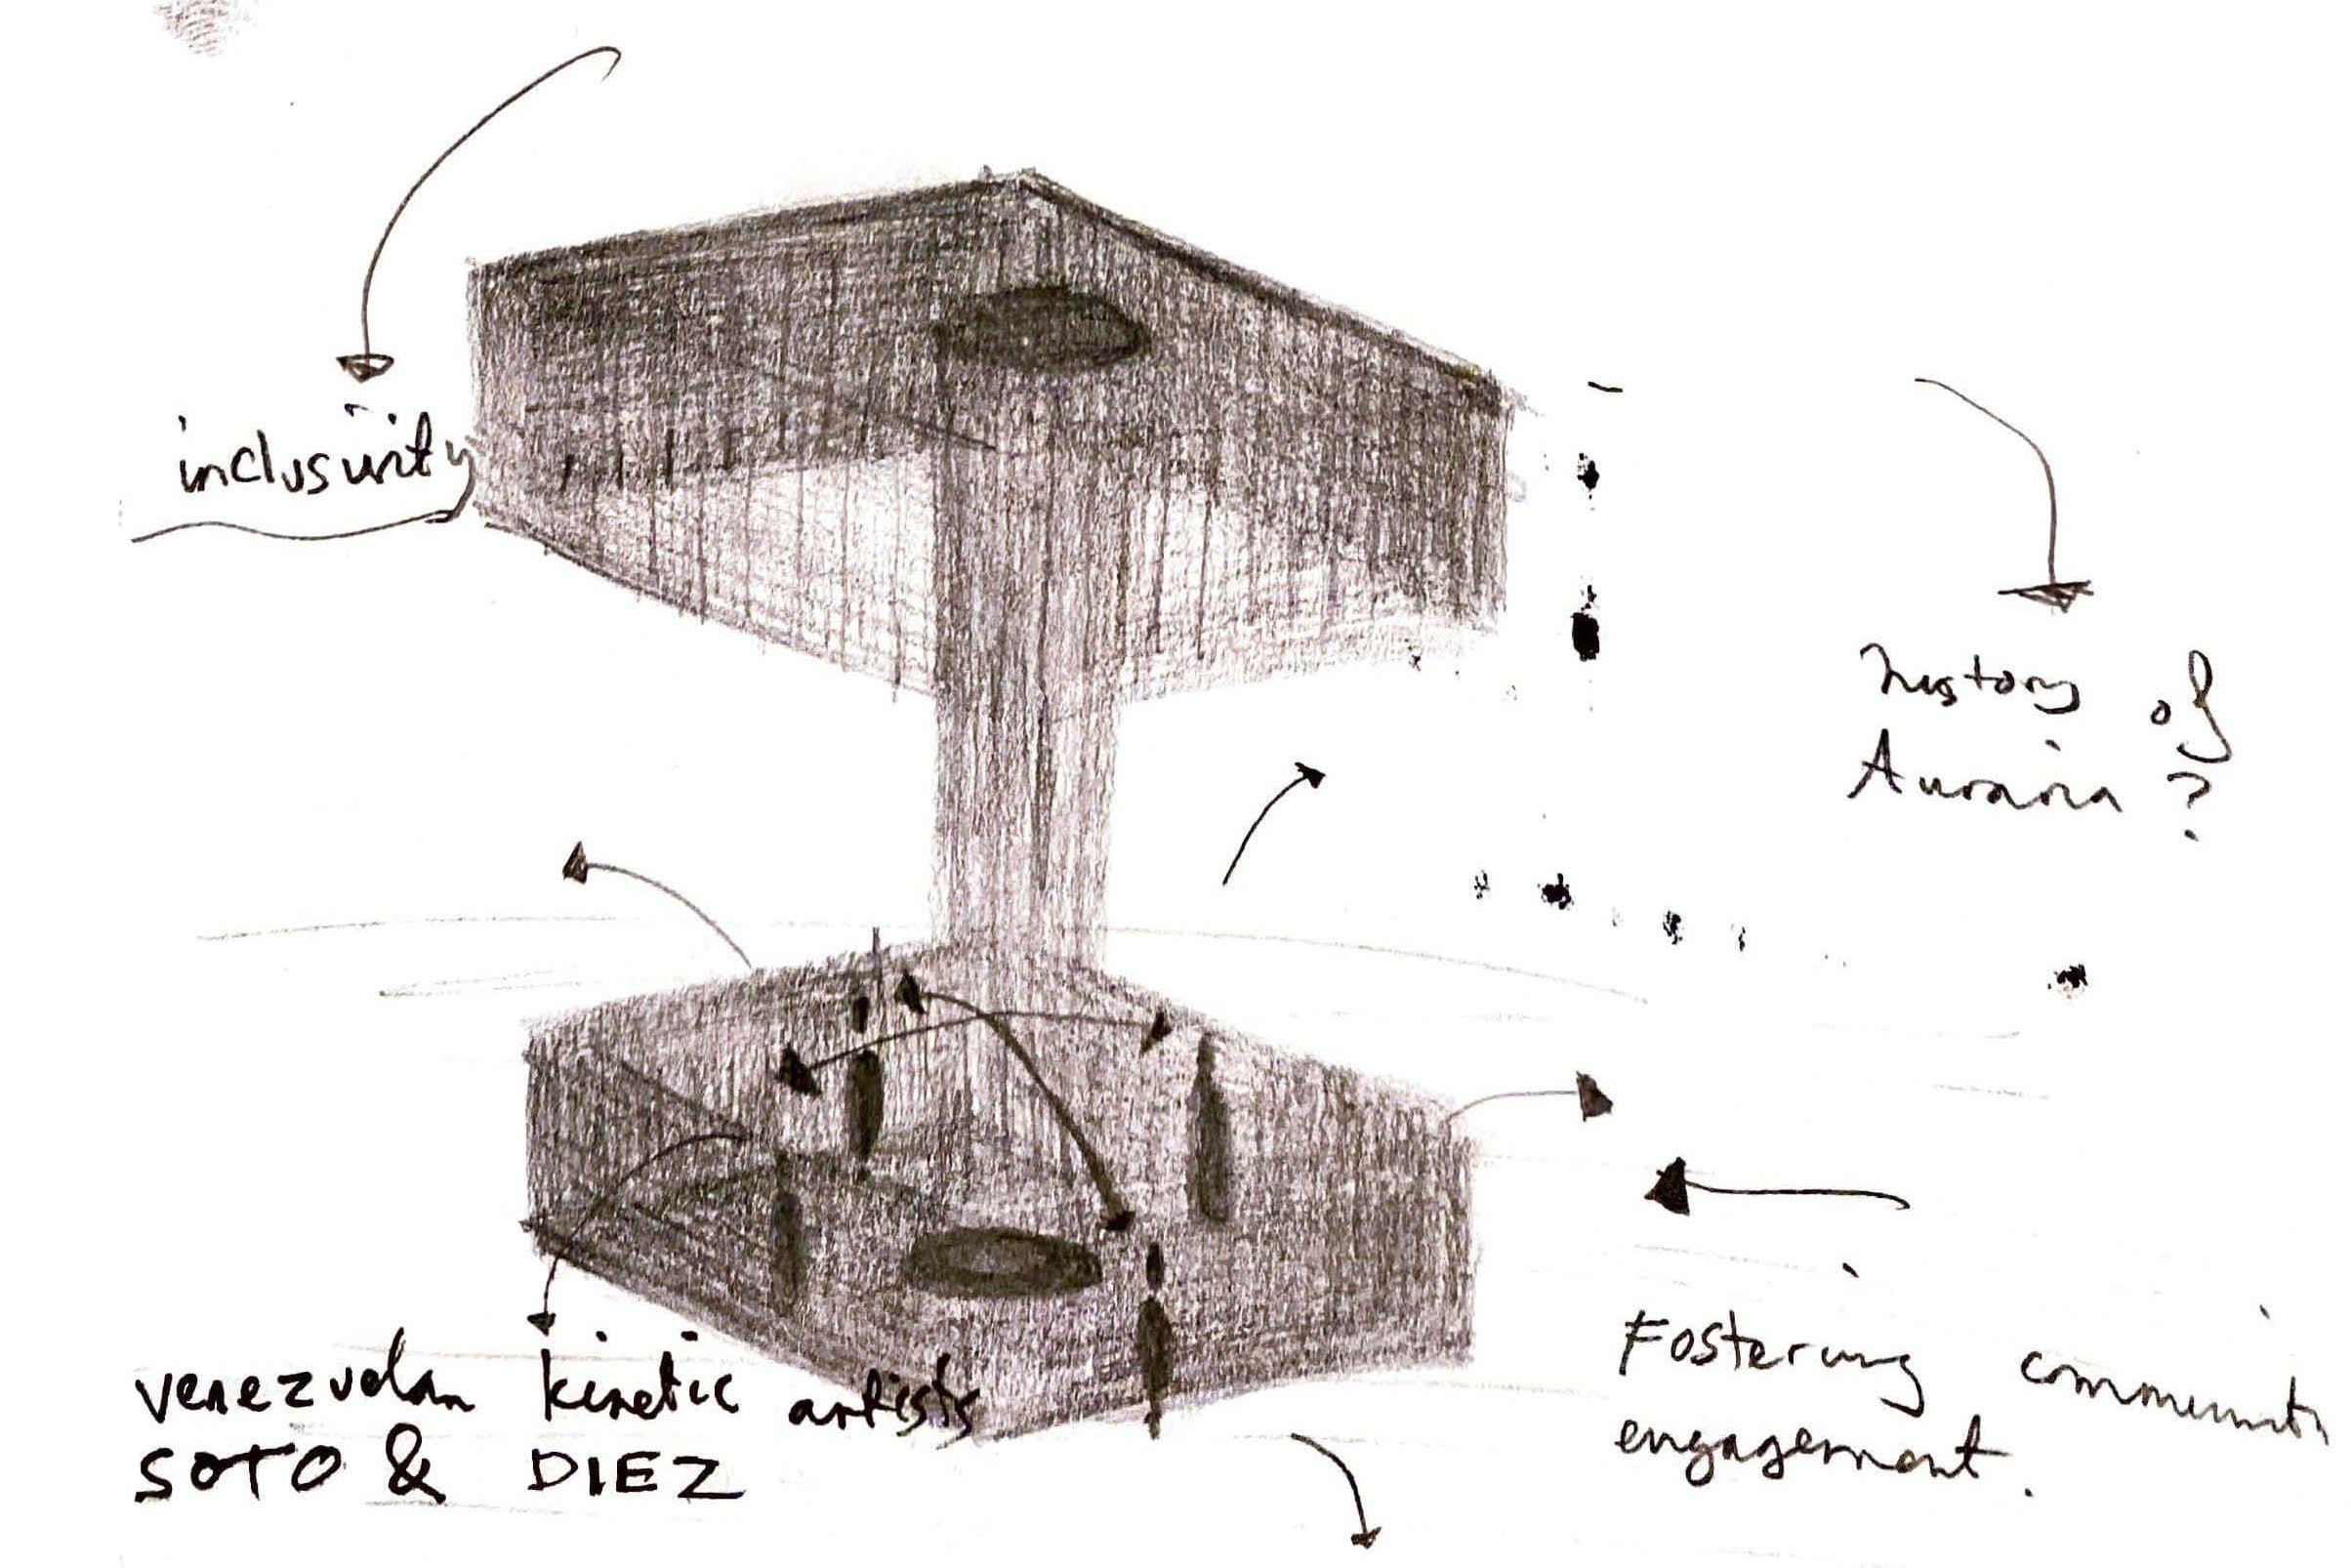 inclusivity
history of
Auraria ?
venezuelan kinetic artists
SOTO & DIEZ
Fostering community
engagement.